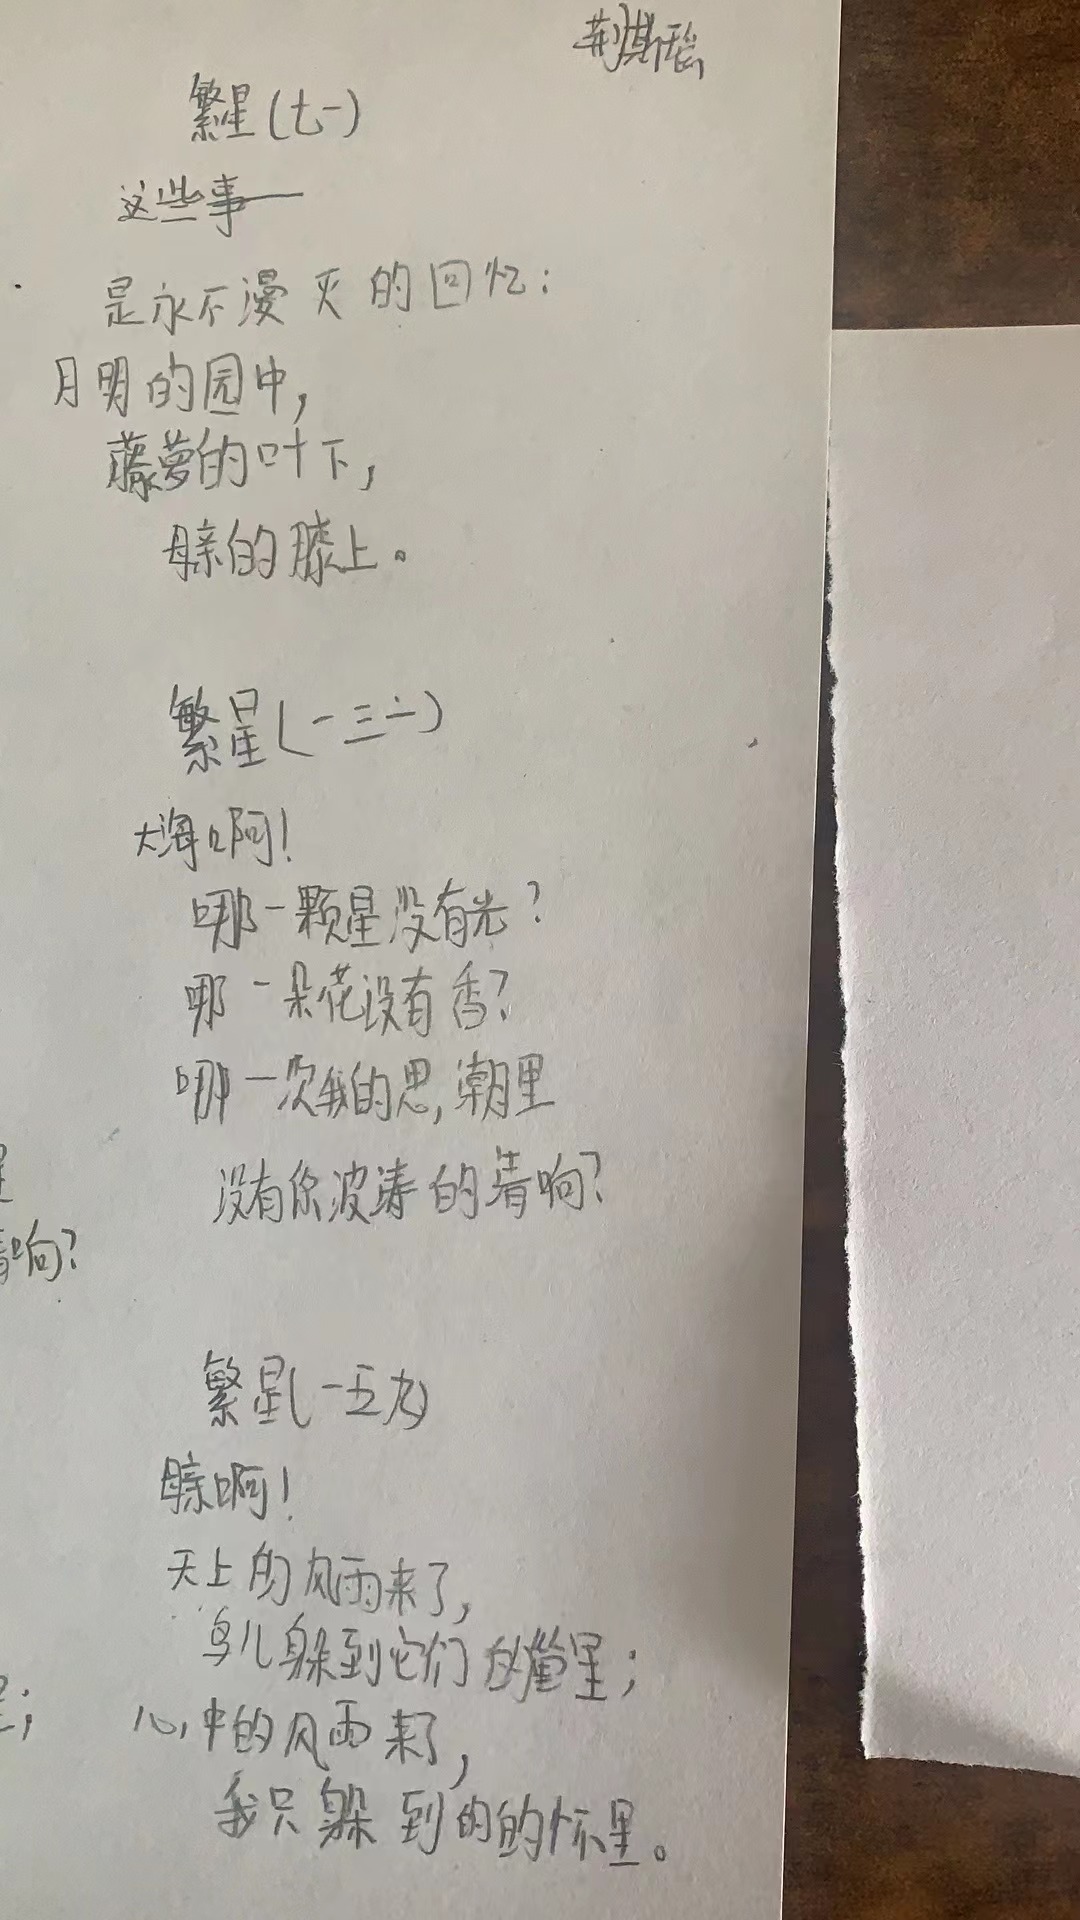 繁星(七一)
这些事——
是永不漫灭的回忆:
月明的园中,
藤萝的叶下,
母亲的膝上。
繁星(一三一)
大海啊!
哪一颗星没有光?
哪一朵花没有香?
哪一次我的思潮里
没有你波涛的清响?
响?
繁星(一五九)
母亲啊!
天上的风雨来了,
鸟儿躲到它们的巢里;
心中的风雨来了,
我只躲到的的怀里。